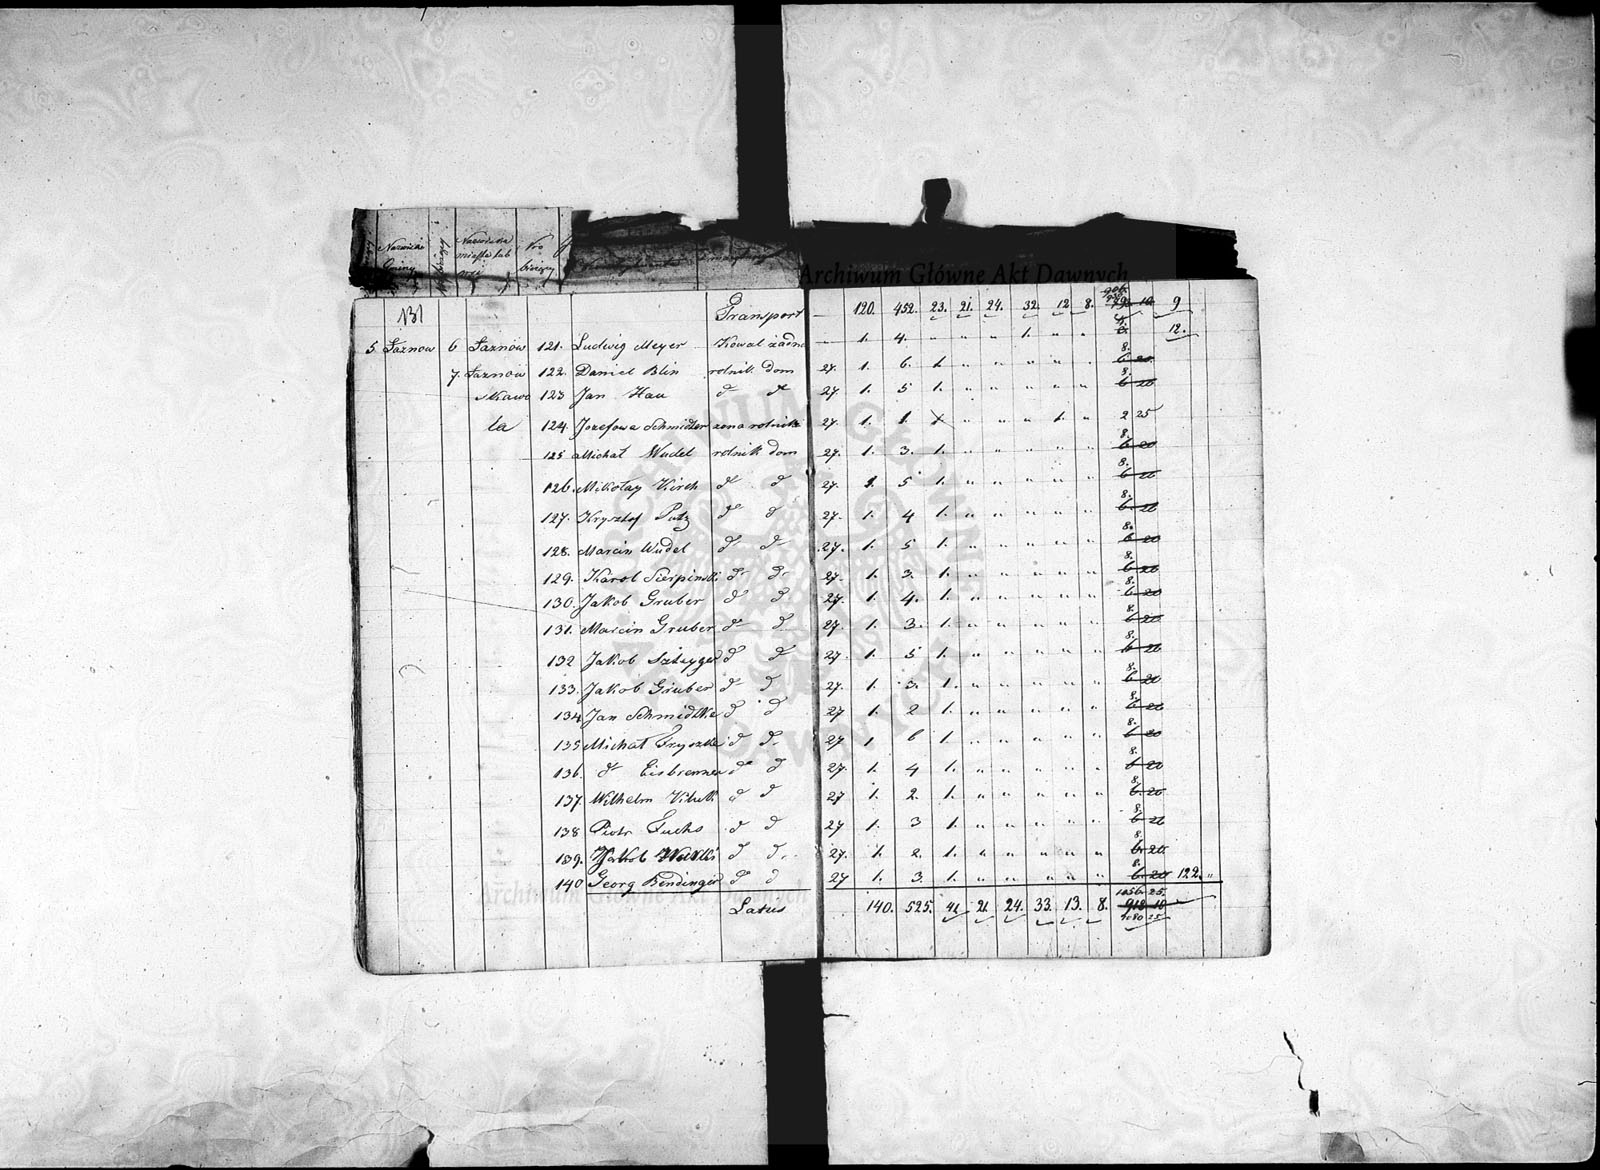 Nazwisko Gminy Nazwiska miasta lub wsi Nro bieżący
Archiwum Główne Akt Dawnych
131 Transport — 120. 452. 23. 21. 24. 32. 12 8. 10 9
5 Łaznow 6 Łaznów 121. Ludwig Meyer Kowal żadn „ 1. 4. „ „ „ 1. „ „ 4. 12.
7. Łaznow 122. Daniel Blin rolnik dom 27. 1. 6. 1. „ „ „ „ „ 8. 6 20
skawo 123 Jan Hau d d 27. 1. 5 1. „ „ „ „ „ 8. 6 20
la 124. Jozefowa Schmidter zona rolnika 27. 1. 1. „ „ „ 1. „ 2 25
125 Michał Wudel rolnik dom 27. 1. 3. 1. „ „ „ „ „ 8. 6 20
126. Mikołay Kirch d d 27. 1. 5 1. „ „ „ „ „ 8. 6 20
127. Krysztof Putz d d 27. 1. 4 1. „ „ „ „ „ 8. 6 20
128. Marcin Wudel d d 27. 1. 5 1. „ „ „ „ „ 8. 6 20
129. Karol Sierpinski d d 27. 1. 3. 1. „ „ „ „ „ 8. 6 20
130. Jakob Gruber d d 27. 1. 4. 1. „ „ „ „ „ 8. 6 20
131. Marcin Gruber d d 27. 1. 3. 1. „ „ „ „ „ 8. 6 20
132 Jakob Szteyger d d 27. 1. 5 1. „ „ „ „ „ 8. 6 20
133. Jakob Gruber d d 27. 1. 3. 1. „ „ „ „ „ 8. 6 20
134 Jan Schmidtke d d 27 1. 2 1. „ „ „ „ „ 8. 6 20
135 Michał Fryszke d d 27 1 6 1. „ „ „ „ „ 8. 6 20
136. d Eisbrenner d d 27. 1. 4 1. „ „ „ „ „ 8. 6 20
137. Wilhelm d d 27 1. 2. 1. „ „ „ „ „ 8. 6 20
138 Piotr Fuchs d d 27 1. 3 1. „ „ „ „ „ 8. 6 20
139. Jakob d d 27. 1. 2. 1. „ „ „ „ „ 8. 6 20
140 Georg Bendinger d d 27 1. 3. 1. „ „ „ „ „ 8. 6 20 122. „
Archiwum Główne Akt Dawnych
Latus 140. 525. 42 21. 24. 33. 13. 8. 1056. 25. 918 10
1080 25